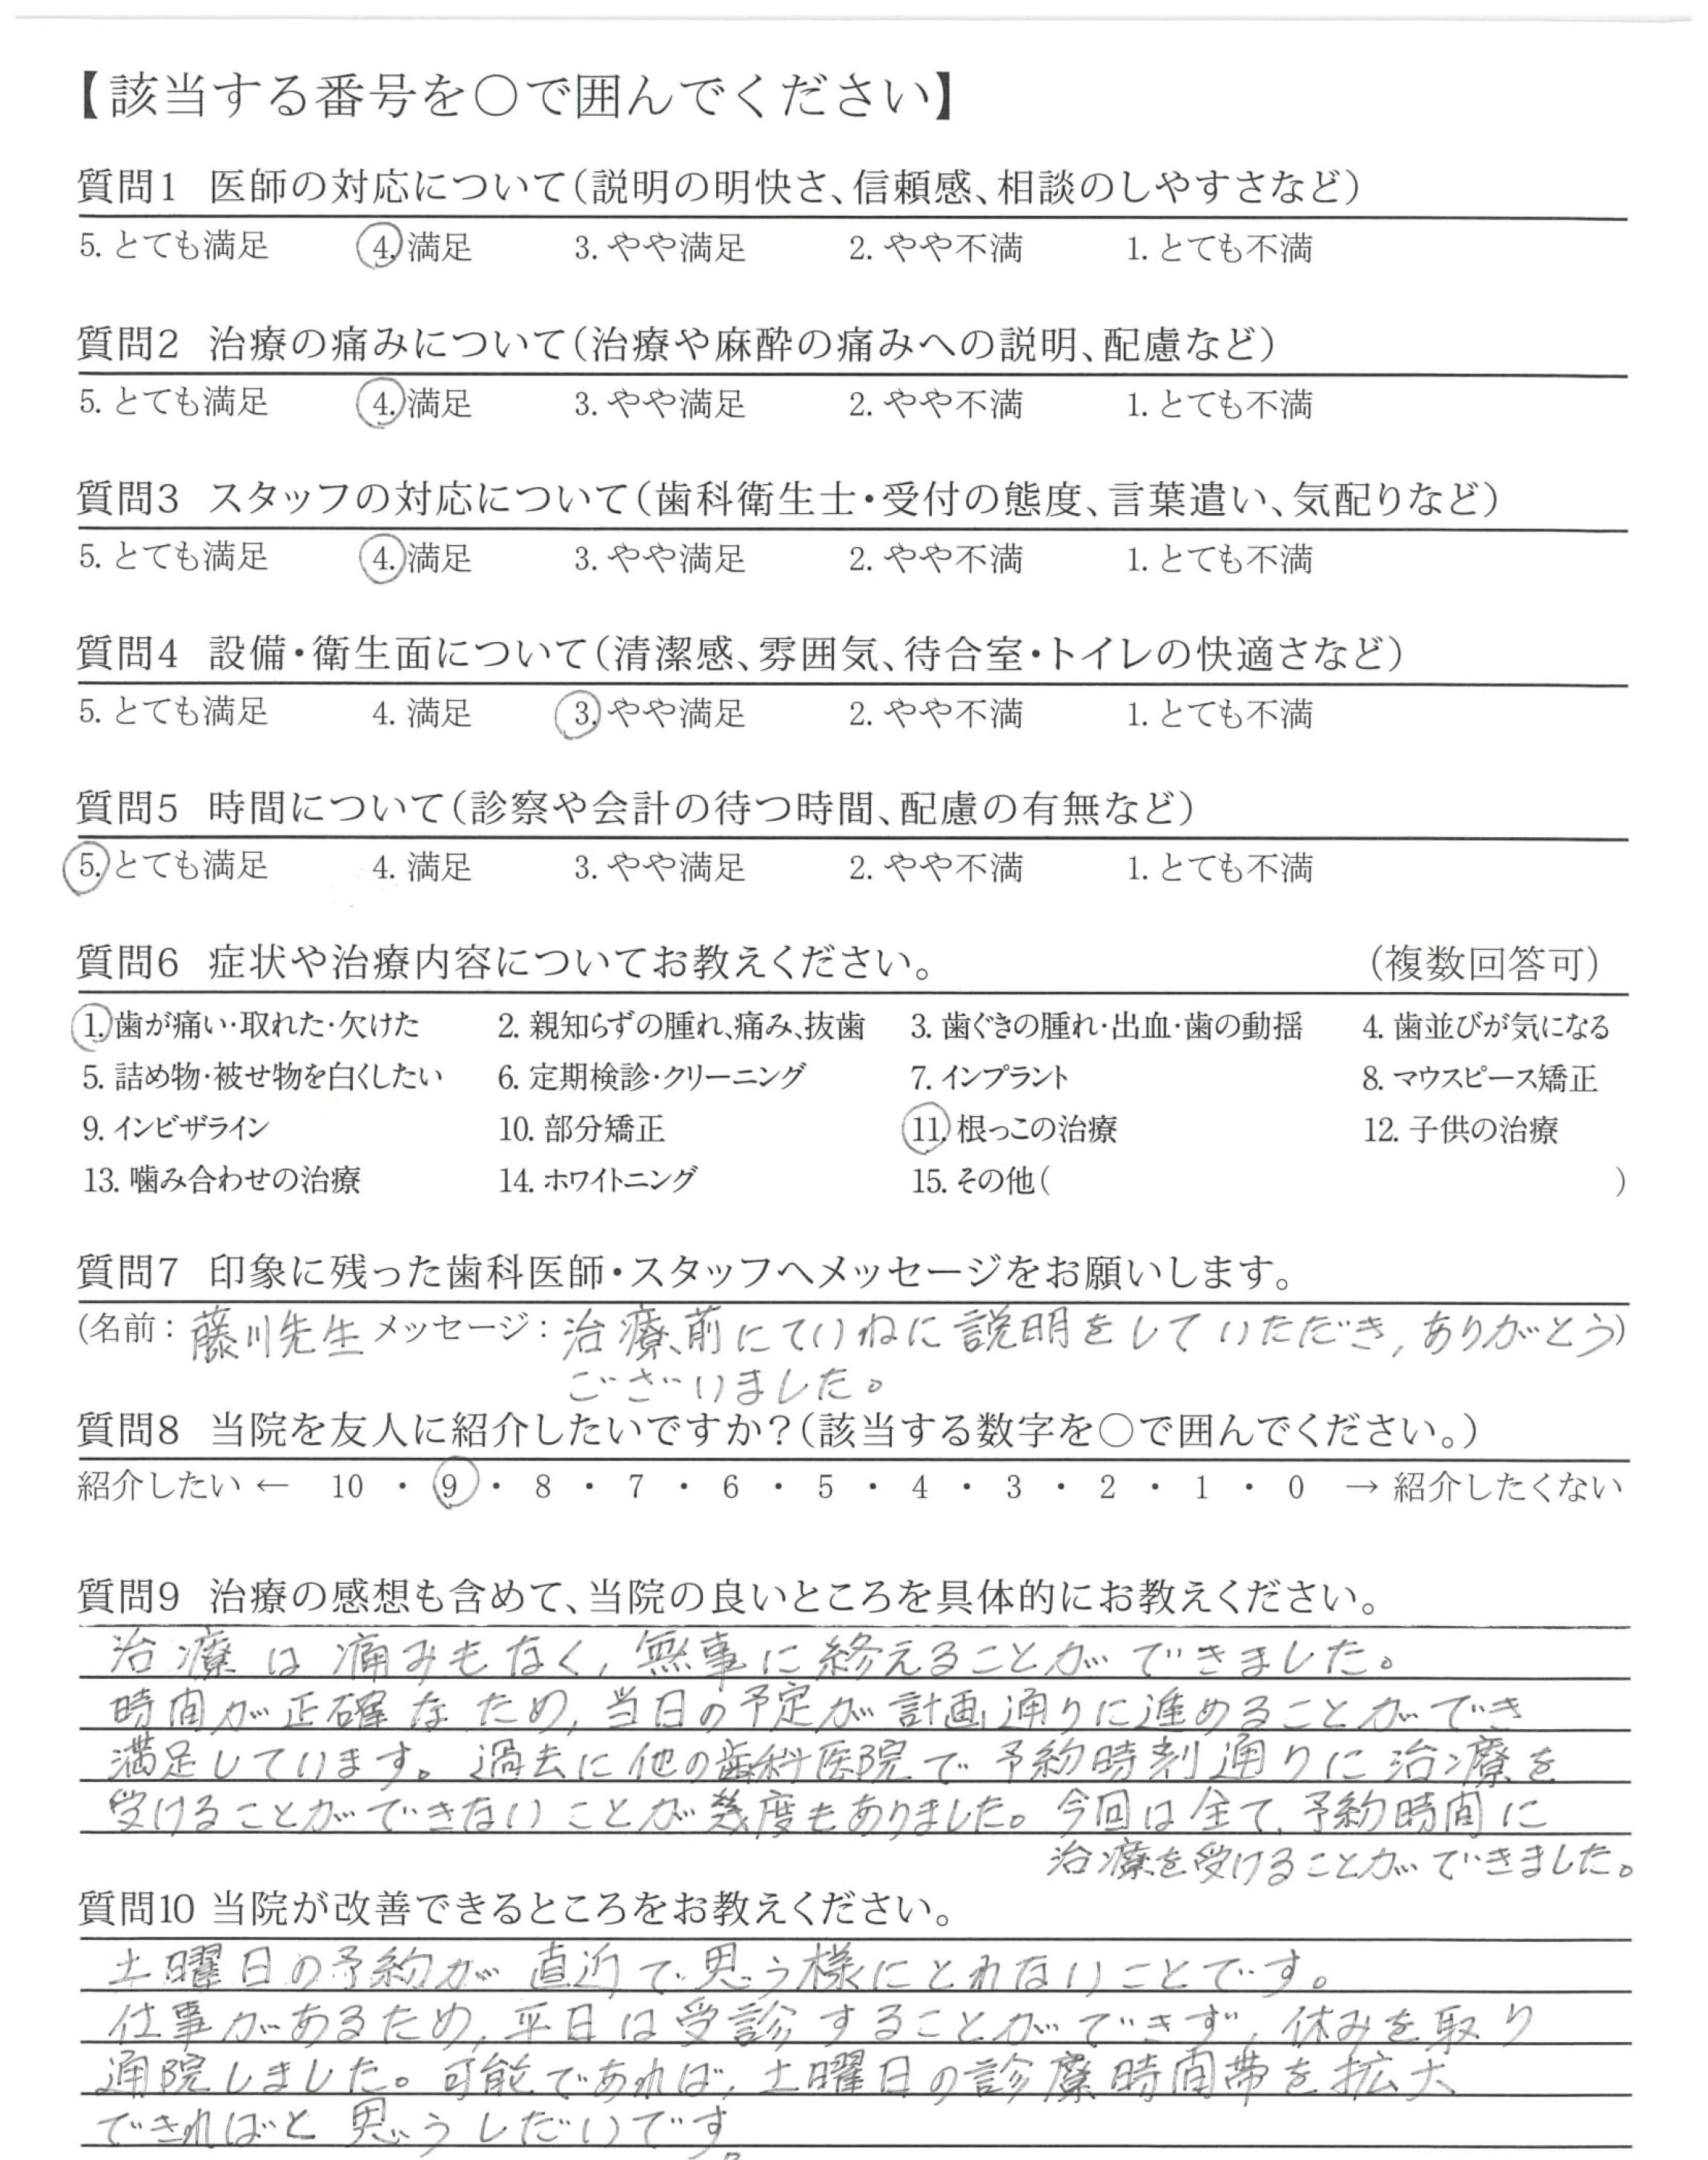 【該当する番号を○で囲んでください】
質問1 医師の対応について(説明の明快さ、信頼感、相談のしやすさなど)
5. とても満足 4. 満足 3. やや満足 2. やや不満 1. とても不満
質問2 治療の痛みについて(治療や麻酔の痛みへの説明、配慮など)
5. とても満足 4. 満足 3. やや満足 2. やや不満 1. とても不満
質問3 スタッフの対応について(歯科衛生士・受付の態度、言葉遣い、気配りなど)
5. とても満足 4. 満足 3. やや満足 2. やや不満 1. とても不満
質問4 設備・衛生面について(清潔感、雰囲気、待合室・トイレの快適さなど)
5. とても満足 4. 満足 3. やや満足 2. やや不満 1. とても不満
質問5 時間について(診察や会計の待つ時間、配慮の有無など)
5. とても満足 4. 満足 3. やや満足 2. やや不満 1. とても不満
質問6 症状や治療内容についてお教えください。 (複数回答可)
1. 歯が痛い・取れた・欠けた 2. 親知らずの腫れ、痛み、抜歯 3. 歯ぐきの腫れ・出血・歯の動揺 4. 歯並びが気になる
5. 詰め物・被せ物を白くしたい 6. 定期検診・クリーニング 7. インプラント 8. マウスピース矯正
9. インビザライン 10. 部分矯正 11. 根っこの治療 12. 子供の治療
13. 噛み合わせの治療 14. ホワイトニング 15. その他( )
質問7 印象に残った歯科医師・スタッフへメッセージをお願いします。
(名前: 藤川先生 メッセージ: 治療前にていねに説明をしていただき, ありがとう)
ございました。
質問8 当院を友人に紹介したいですか?(該当する数字を○で囲んでください。)
紹介したい ← 10 ・ 9 ・ 8 ・ 7 ・ 6 ・ 5 ・ 4 ・ 3 ・ 2 ・ 1 ・ 0 → 紹介したくない
質問9 治療の感想も含めて、当院の良いところを具体的にお教えください。
治療は痛みもなく, 無事に終えることができました。
時間が正確なため, 当日の予定が計画通りに進めることができ
満足しています。過去に他の歯科医院で予約時刻通りに治療を
受けることができないことが幾度もありました。今回は全て、予約時間に
治療を受けることができました。
質問10 当院が改善できるところをお教えください。
土曜日の予約が直近で思う様にとれないことです。
仕事があるため, 平日は受診することができず, 休みを取り
通院しました。可能であれば, 土曜日の診療時間帯を拡大
できればと思うしだいです。